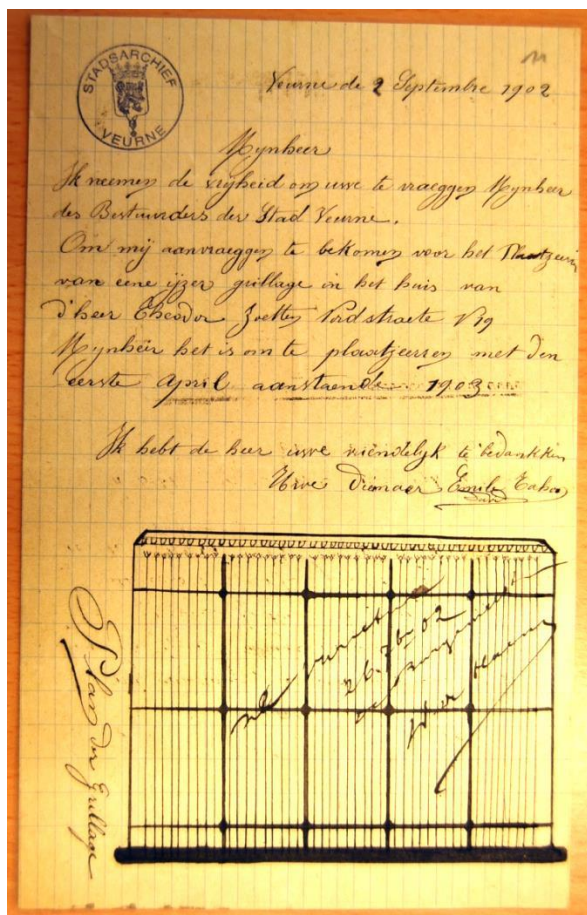 STADSARCHIEF
VEURNE
Veurne de 2 Septembre 1902
Mynheer
Ik neemen de vrijheid om uwe te vraeggen Mynheer
des Bestuurders der Stad Veurne.
Om mij aanvraeggen te bekomen voor het
van eene ijzer grillage in het huis van
d'heer Theodor Zoetten Nordstraete N 19
Mynheer het is om te plaatjeerren met den
eerste April aanstaende 1903
Ik hebt de heer uwe vriendelyk te bedankken
Uwe Dienaer Emile
Plan der Grillage
26. 7b 02